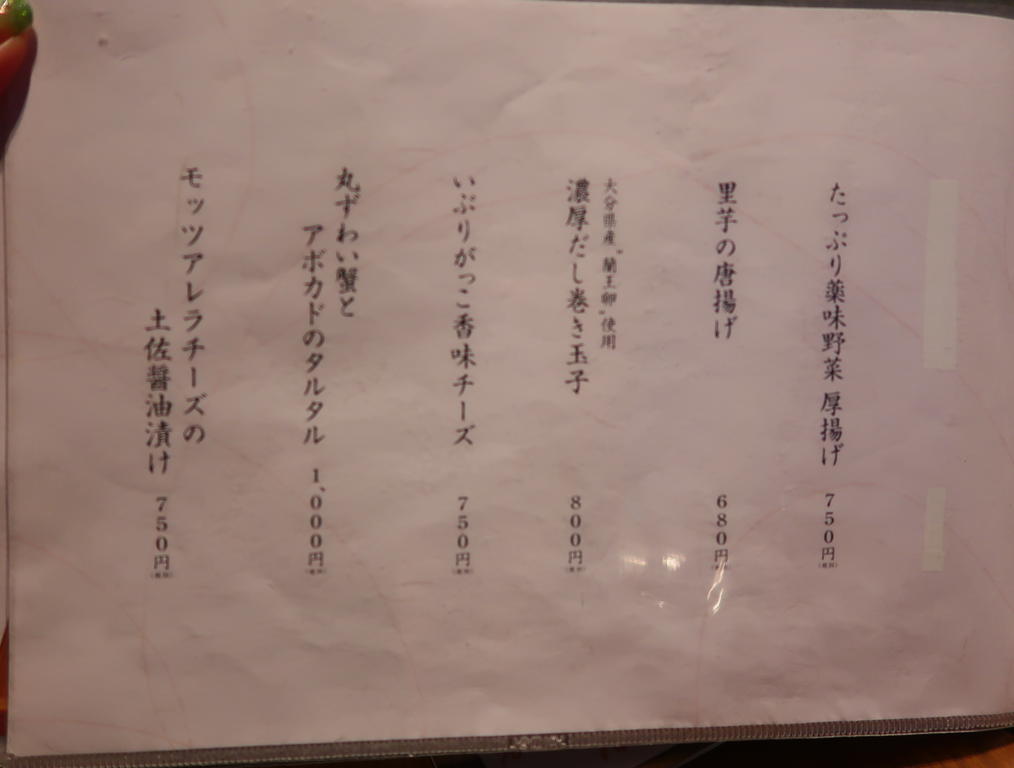 たっぷり薬味野菜 厚揚げ
750円
里芋の唐揚げ
680円
大分県産"蘭王卵"使用
濃厚だし巻き玉子
800円
いぶりがっこ香味チーズ
750円
丸ずわい蟹と
アボカドのタルタル
1,000円
モッツアレラチーズの
土佐醤油漬け
750円